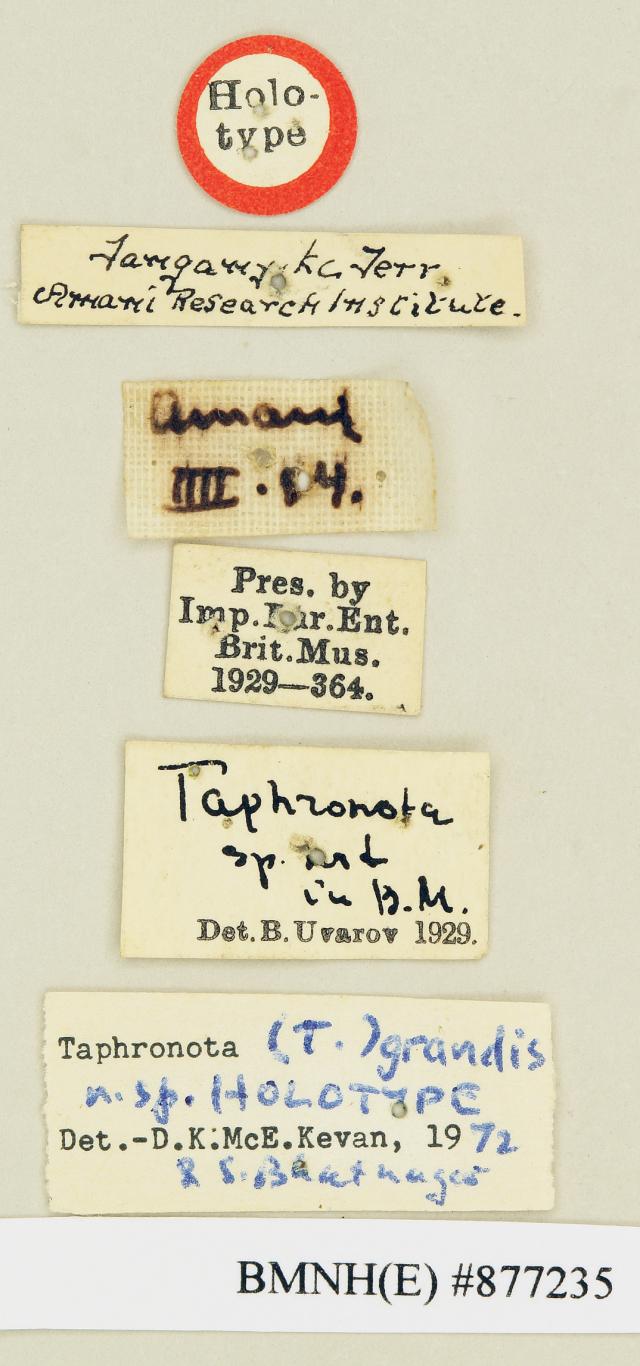 Holo-
type
Tanganyka Terr.
Amani Research Institute.
Amani
IIII.
Pres. by
Imp. Bur. Ent.
Brit. Mus.
1929—364.
Taphronota
sp. not
in B.M.
Det. B. Uvarov 1929.
Taphronota (T.) grandis
n. sp. HOLOTYPE
Det.-D.K.McE.Kevan, 1972
& S. Bhatnagar
BMNH(E) #877235